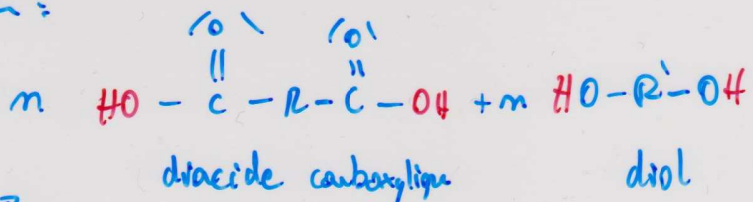 (O) (O)
|| ||
n HO - C - R - C - OH + n HO - R' - OH
diacide carboxylique diol